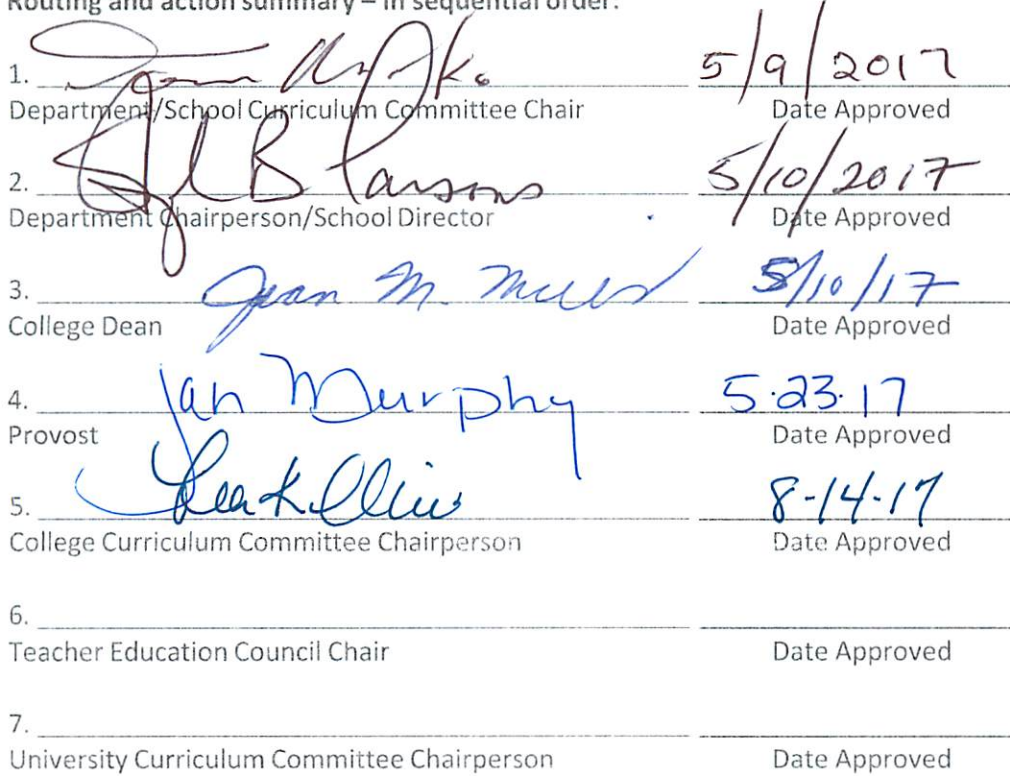 Routing and action summary – in sequential order:
1. 5/9/2017
Department/School Curriculum Committee Chair Date Approved
2. B Parsons 5/10/2017
Department Chairperson/School Director Date Approved
3. Jean M. 5/10/17
College Dean Date Approved
4. Jan Murphy 5.23.17
Provost Date Approved
5. 8-14-17
College Curriculum Committee Chairperson Date Approved
6.
Teacher Education Council Chair Date Approved
7.
University Curriculum Committee Chairperson Date Approved